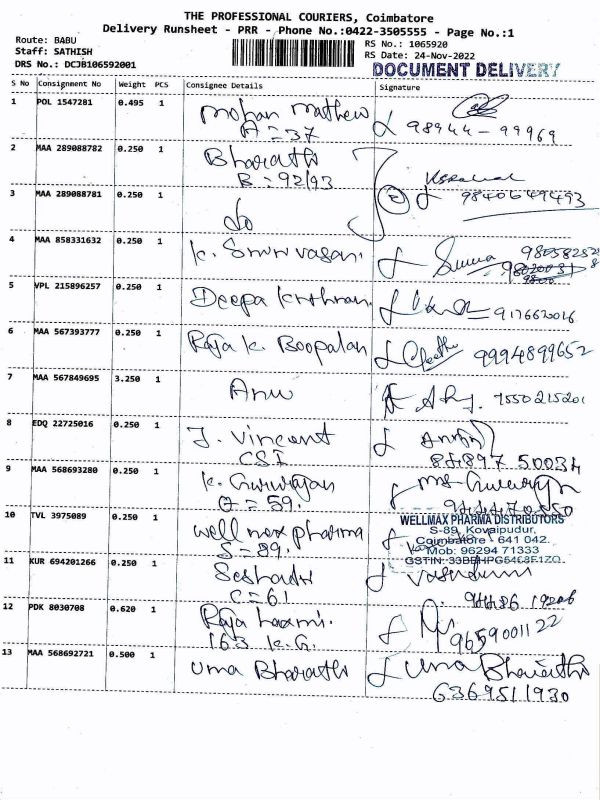 THE PROFESSIONAL COURIERS, Coimbatore
Delivery Runsheet - PRR - Phone No.:0422-3505555 - Page No.:1
Route: BABU
RS No.: 1065920
Staff: SATHISH
RS Date: 24-Nov-2022
DRS No.: DCJB106592001
DOCUMENT DELIVERY
S No Consignment No Weight PCS Consignee Details Signature
1 POL 1547281 0.495 1 Mohan Mathew
A = 37 98944-99969
2 MAA 289088782 0.250 1 Bharathi
B = 92/93
3 MAA 289088781 0.250 1 Do 9840649493
4 MAA 858331632 0.250 1 K. Srinivasan
5 VPL 215896257 0.250 1 Deepa Krithnan 9176620016
6 MAA 567393777 0.250 1 Raja K. Boopalan 9994899652
7 MAA 567849695 3.250 1 Anu 7550215201
8 EDQ 22725016 0.250 1 J. Vincent
CSI 84897 50034
9 MAA 568693280 0.250 1 K. Gururajan
59.
10 TVL 3975089 0.250 1 Wellmax pharma
S = 89.
WELLMAX PHARMA DISTRIBUTORS
S-89, Kovaipudur,
Coimbatore - 641 042.
Mob: 96294 71333
11 KUR 694201266 0.250 1 Seshadri
C = 61
12 PDK 8030708 0.620 1 Raja Laxmi.
163 K.G. 9659001122
13 MAA 568692721 0.500 1 Uma Bharathi Uma Bharathi
6369511930